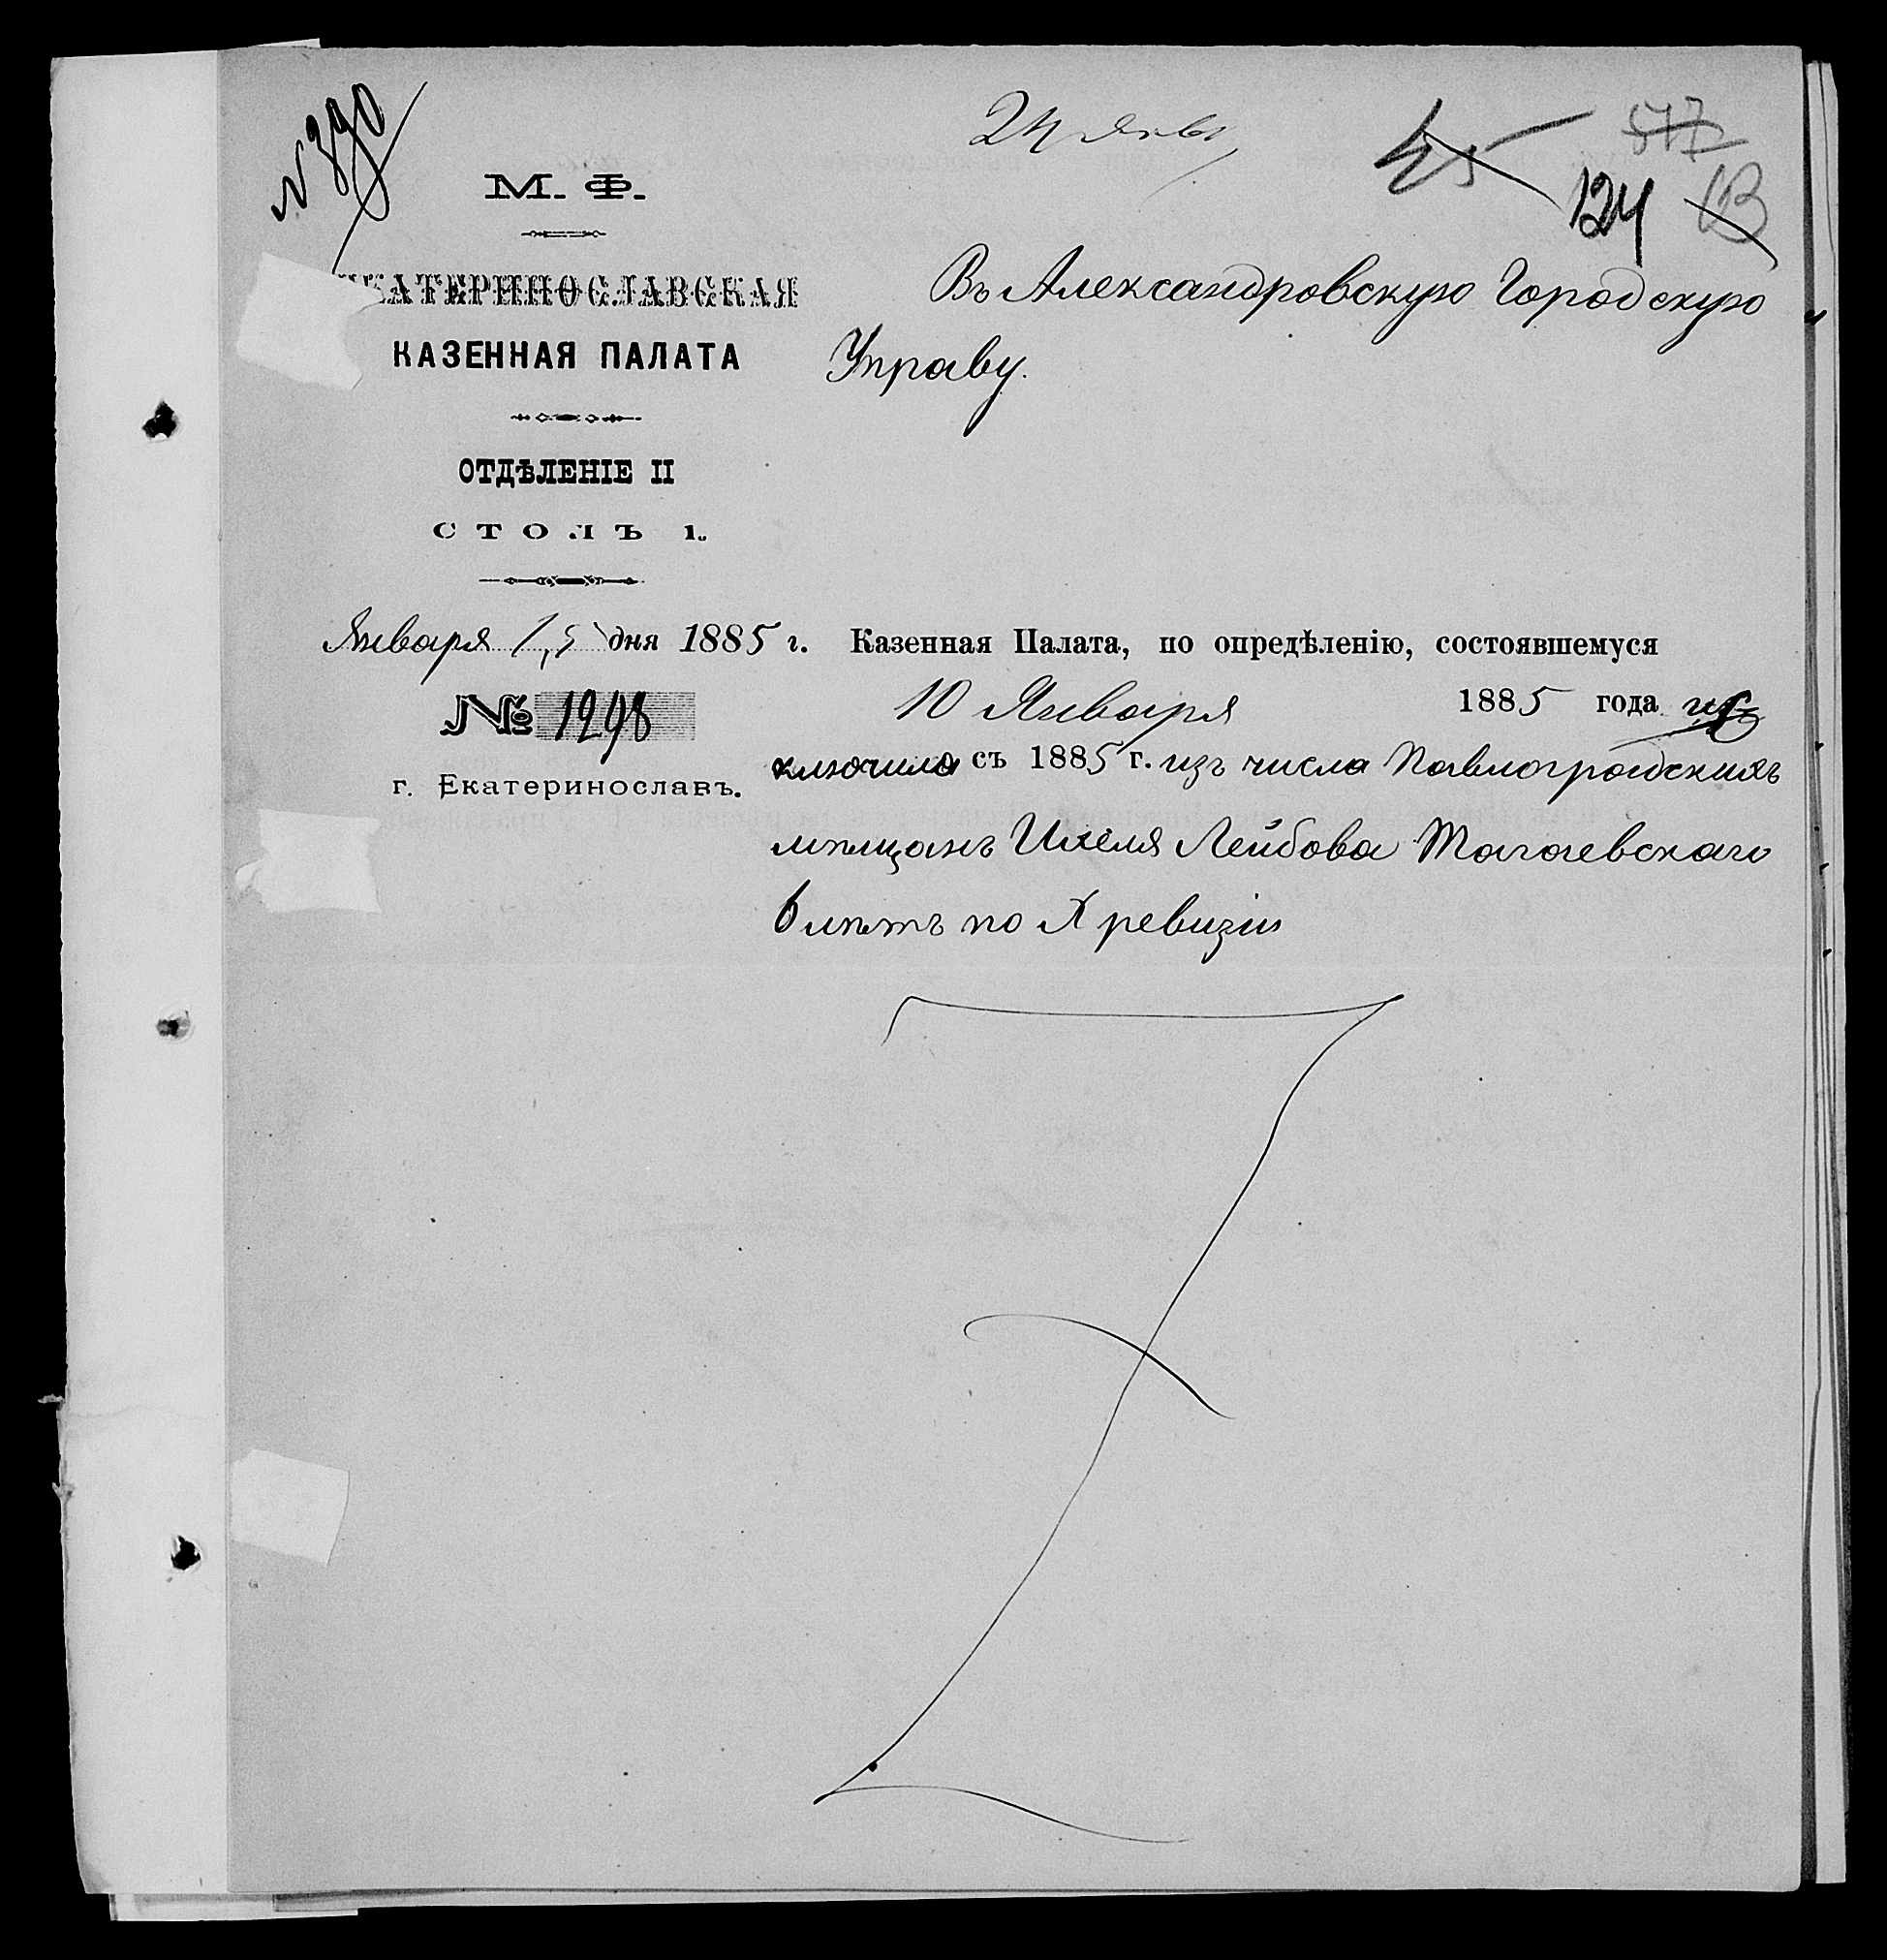 № 390
24 Янв.
45
577
124
13
М. Ф.
ЕКАТЕРИНОСЛАВСКАЯ
КАЗЕННАЯ ПАЛАТА
ОТДѢЛЕНІЕ II
СТОЛЪ 1.
Января 15 дня 1885 г.
№ 1298
г. Екатеринославъ.
Въ Александровскую Городскую
Управу.
Казенная Палата, по опредѣленію, состоявшемуся
10 Января 1885 года ис
ключила съ 1885 г. изъ числа Павлоградскихъ
мѣщанъ Ихеля Лейбова Тагаевскаго
6 лѣтъ по X ревизіи